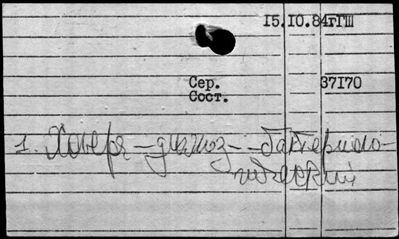 15.10.84гПП
Сер. 37170
Сост.
1. Холера – диагноз – бактериоло-
гический